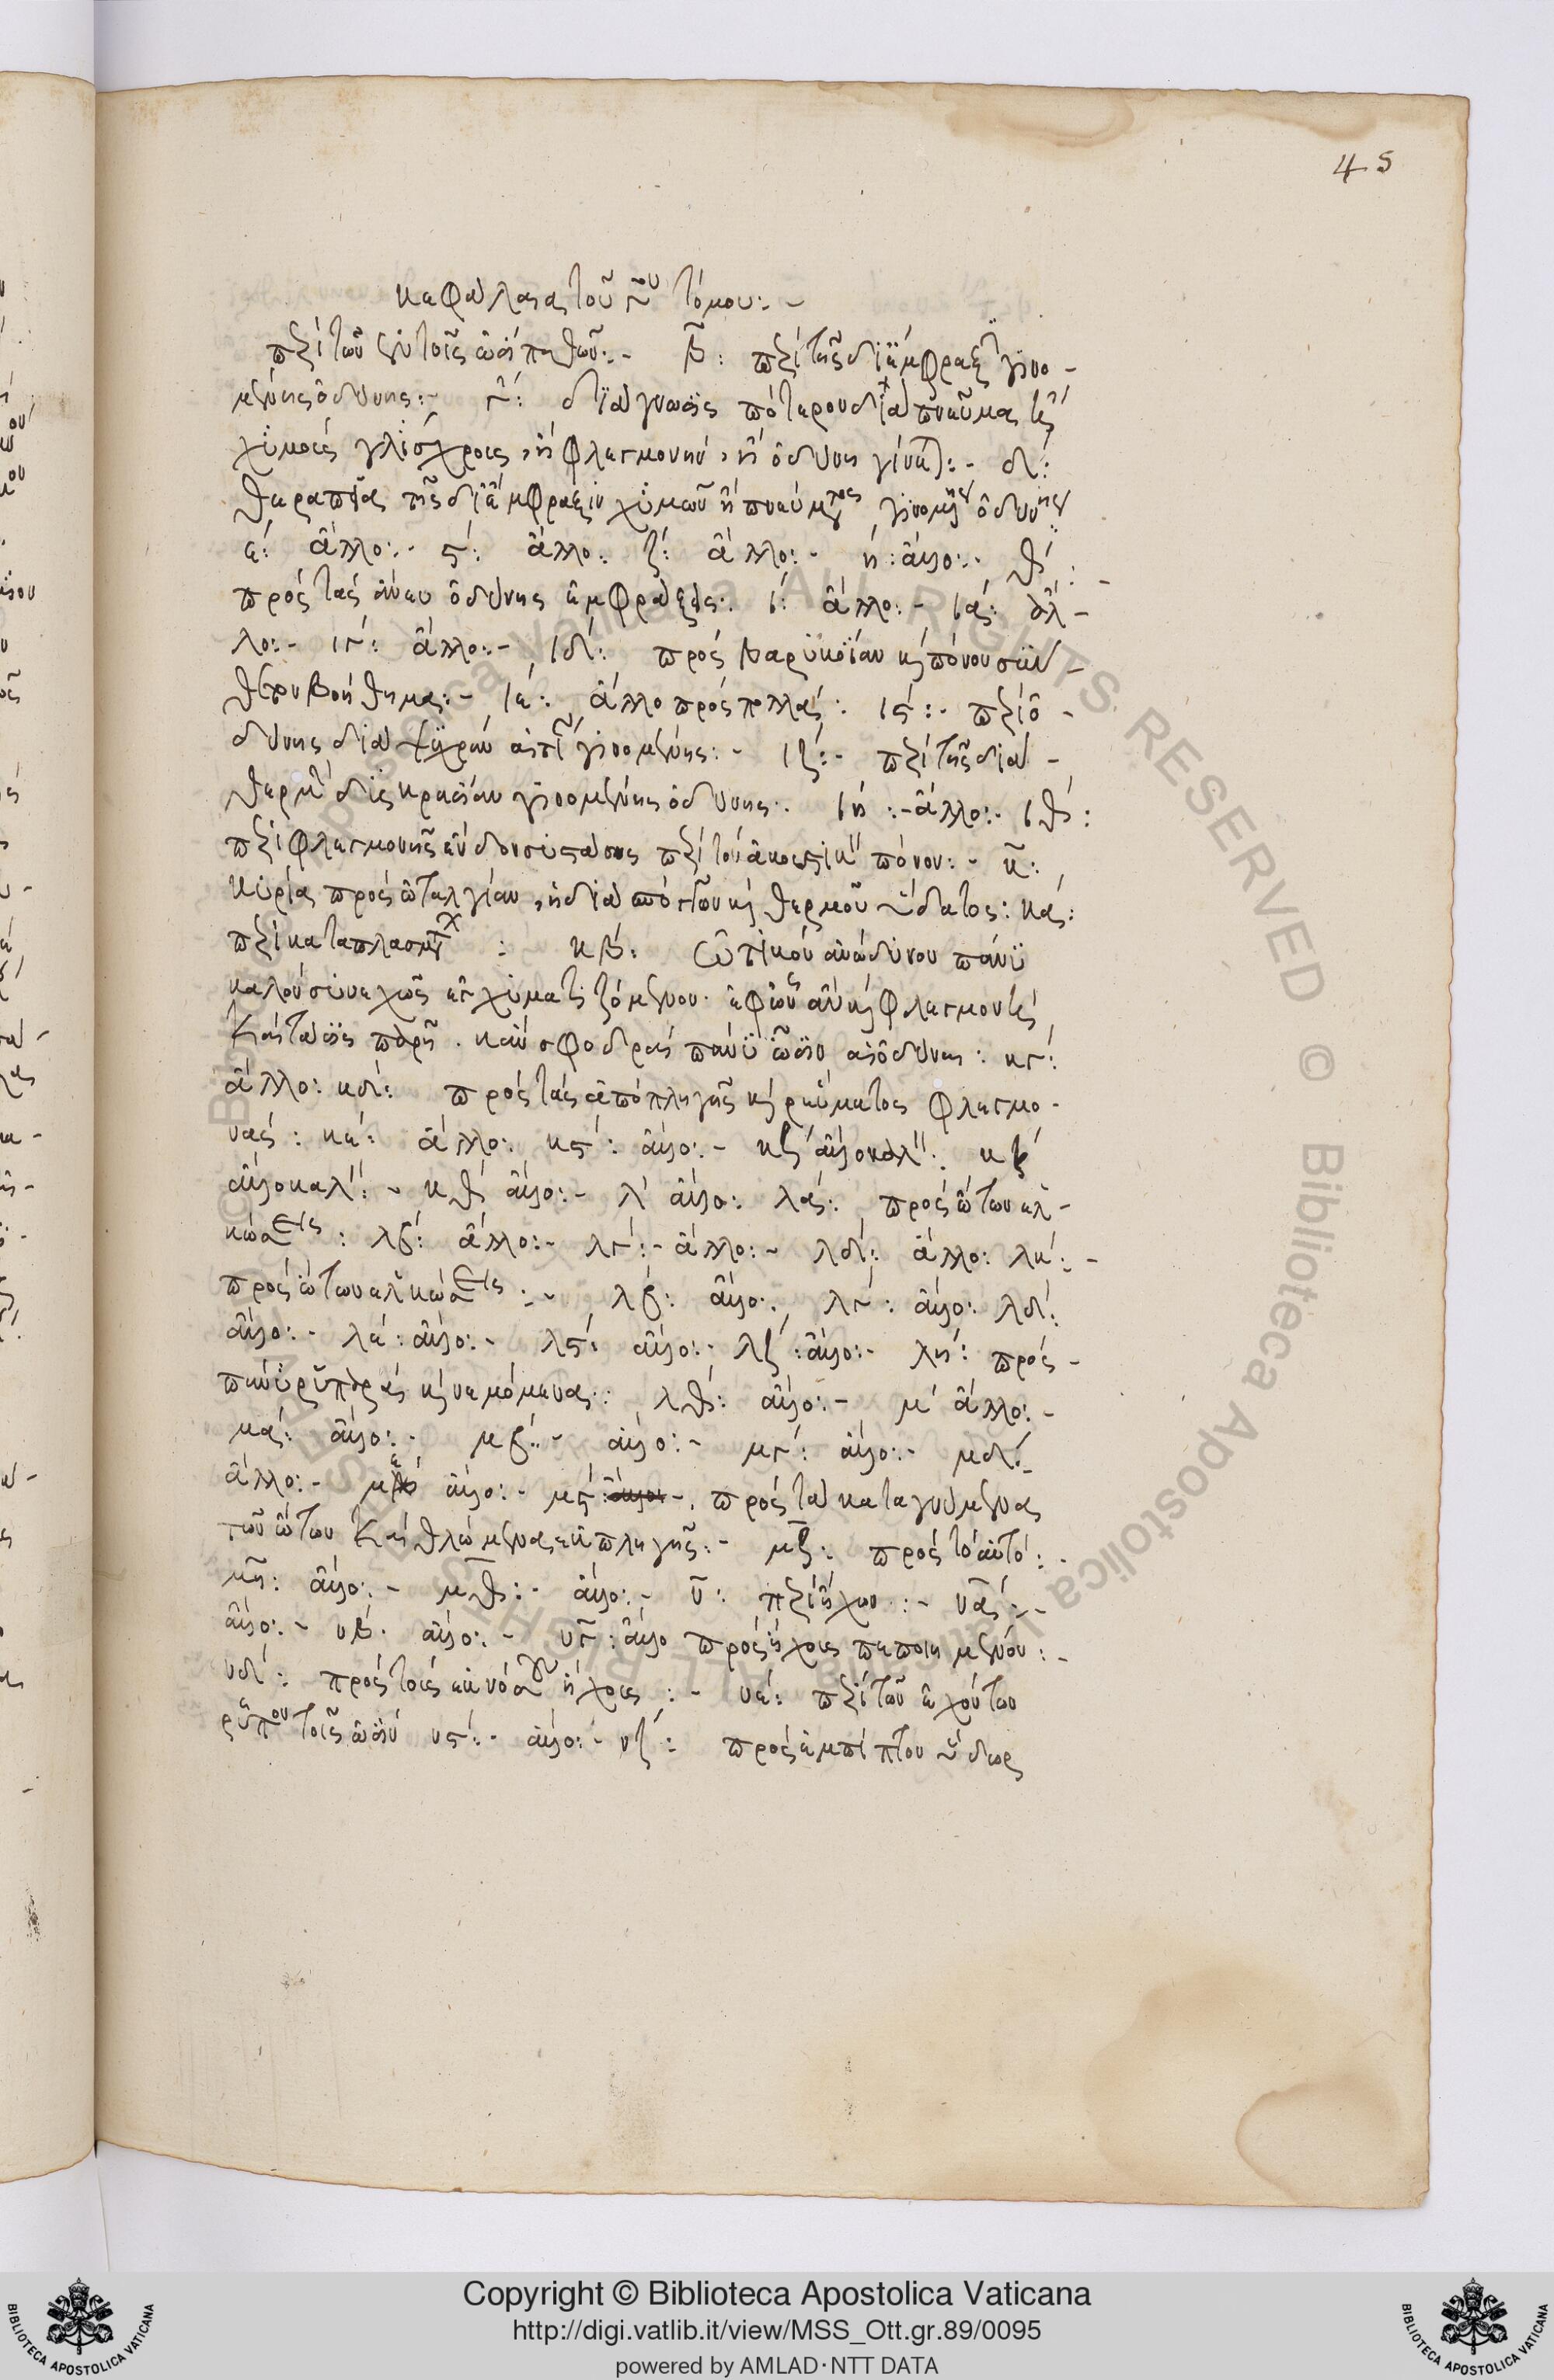 45
κεφάλαια τοῦ γου τόμου:-
περὶ τῶν ἐν τοῖς ὠσὶ παθῶν:- β: περὶ τῆς δι ἔμφραξιν γινο-
μένης ὀδύνης:- γ: διάγνωσις πότερον διὰ πνεῦμα ἢ
χυμοὺς γλίσχρους, ἢ φλεγμονὴν, ἡ ὀδύνη γίνεται:- δ:
θεραπεία τῆς δι ἔμφραξιν χυμῶν ἢ πνεύματος γινομένης ὀδύνης
ε: ἄλλο:- ς: ἄλλο: ζ: ἄλλο:- η: ἄλλο:- θ:-
πρὸς τὰς ἄνευ ὀδύνης ἐμφράξεις: ι: ἄλλο:- ια: ἄλ-
λο:- ιγ: ἄλλο:- ιδ: πρὸς βαρυκοΐαν καὶ πόνου σὺν-
θετον βοήθημα:- ιε: ἄλλο πρὸς πολλὰς: ις:- περὶ ὀ-
δύνης διὰ ψυχρὰν αἰτίαν γινομένης:- ιζ:- περὶ τῆς διὰ-
θερμὴν δυσκρασίαν γινομένης ὀδύνης: ιη:- ἄλλο:- ιθ:
περὶ φλεγμονῆς ἔνδον συστάσης περὶ τὸν ἀκουστικὸν πόρον:- κ:
πυρία πρὸς ὠταλγίαν, ἡ διὰ σπόγγων καὶ θερμοῦ ὕδατος: κα:
περὶ καταπλασμάτων: κβ: ὠτικὸν ἀνώδυνον πάνυ
καλὸν συνεχῶς ἐγχυματιζόμενον· ἐφ ὧν ἂν καὶ φλεγμονὴ
καὶ τάσις παρῇ. κἂν σφοδραὶ πάνυ ὦσιν αἱ ὀδύναι: κγ:
ἄλλο: κδ: πρὸς τὰς ἀπὸ πληγῆς καὶ ῥεύματος φλεγμο-
νάς: κε: ἄλλο: κς: ἄλλο:- κζ ἄλλο καλόν: κη
ἄλλο καλόν:- κθ ἄλλο:- λ ἄλλο: λα: πρὸς ὤτων ἑλ-
κώσεις: λβ: ἄλλο:- λγ:- ἄλλο:- λδ: ἄλλο: λε:-
πρὸς ὤτων ἑλκώσεις:- λβ: ἄλλο: λγ: ἄλλο: λδ:
ἄλλο:- λε: ἄλλο:- λς: ἄλλο:- λζ: ἄλλο:- λη: πρὸς-
πάνυ ῥυπαρὰς καὶ νεμόμενας: λθ: ἄλλο:- μ ἄλλο:-
μα: ἄλλο:- μβ:- ἄλλο:- μγ: ἄλλο:- μδ:
ἄλλο:- με ἄλλο:- μς: ἄλλο:- πρὸς τὰ καταγνύμενα
τῶν ὤτων καὶ θλώμενα ἐκ πληγῆς:- μζ: πρὸς τὸ αὐτό:-
μη: ἄλλο:- μθ:- ἄλλο:- ν: περὶ ἤχων:- να:-
ἄλλο:- νβ· ἄλλο:- νγ: ἄλλο πρὸς ἤχους πεποιημένον:-
νδ: πρὸς τοὺς ἐκ νόσων ἤχους:- νε: περὶ τῶν ἐχόντων
ῥύπον τοῖς ὠσὶν νς:- ἄλλο:- νζ: πρὸς ἐμπίπτον ὕδωρ
Copyright © Biblioteca Apostolica Vaticana
http://digi.vatlib.it/view/MSS_Ott.gr.89/0095
powered by AMLAD·NTT DATA